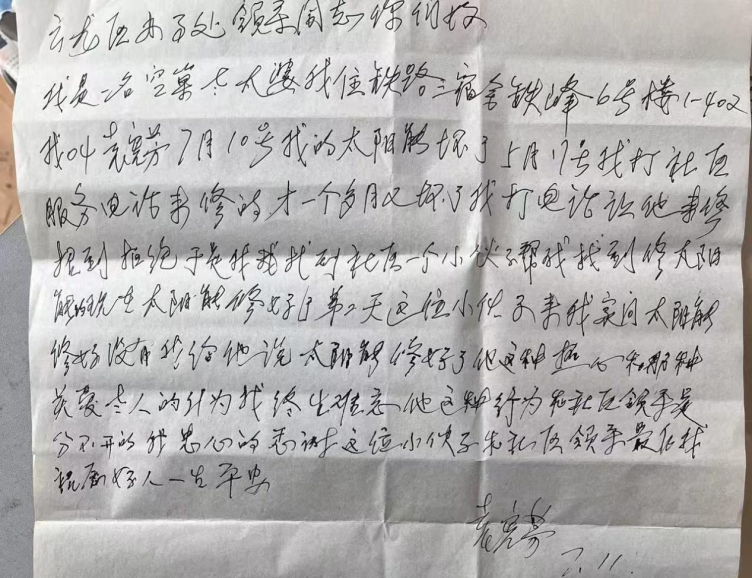 云龙区办事处领导同志你们好
我是一名空巢老太婆我住铁路三宿舍铁峰6号楼1-402
我叫袁 芳7月10号我的太阳能坏了5月17号我打社区
服务电话来修的才一个多月又坏了我打电话让他来修
遭到拒绝于是我就找到社区一个小伙子帮我找到修太阳
能的先生太阳能修好了第二天这位小伙子来我家问太阳能
修好没有我给他说太阳能修好了他这种热心和那种
关爱老人的行为我终生难忘他这种行为和社区领导是
分不开的我忠心的感谢这位小伙子和社区领导最后我
祝愿好人一生平安
袁 芳
7.11.